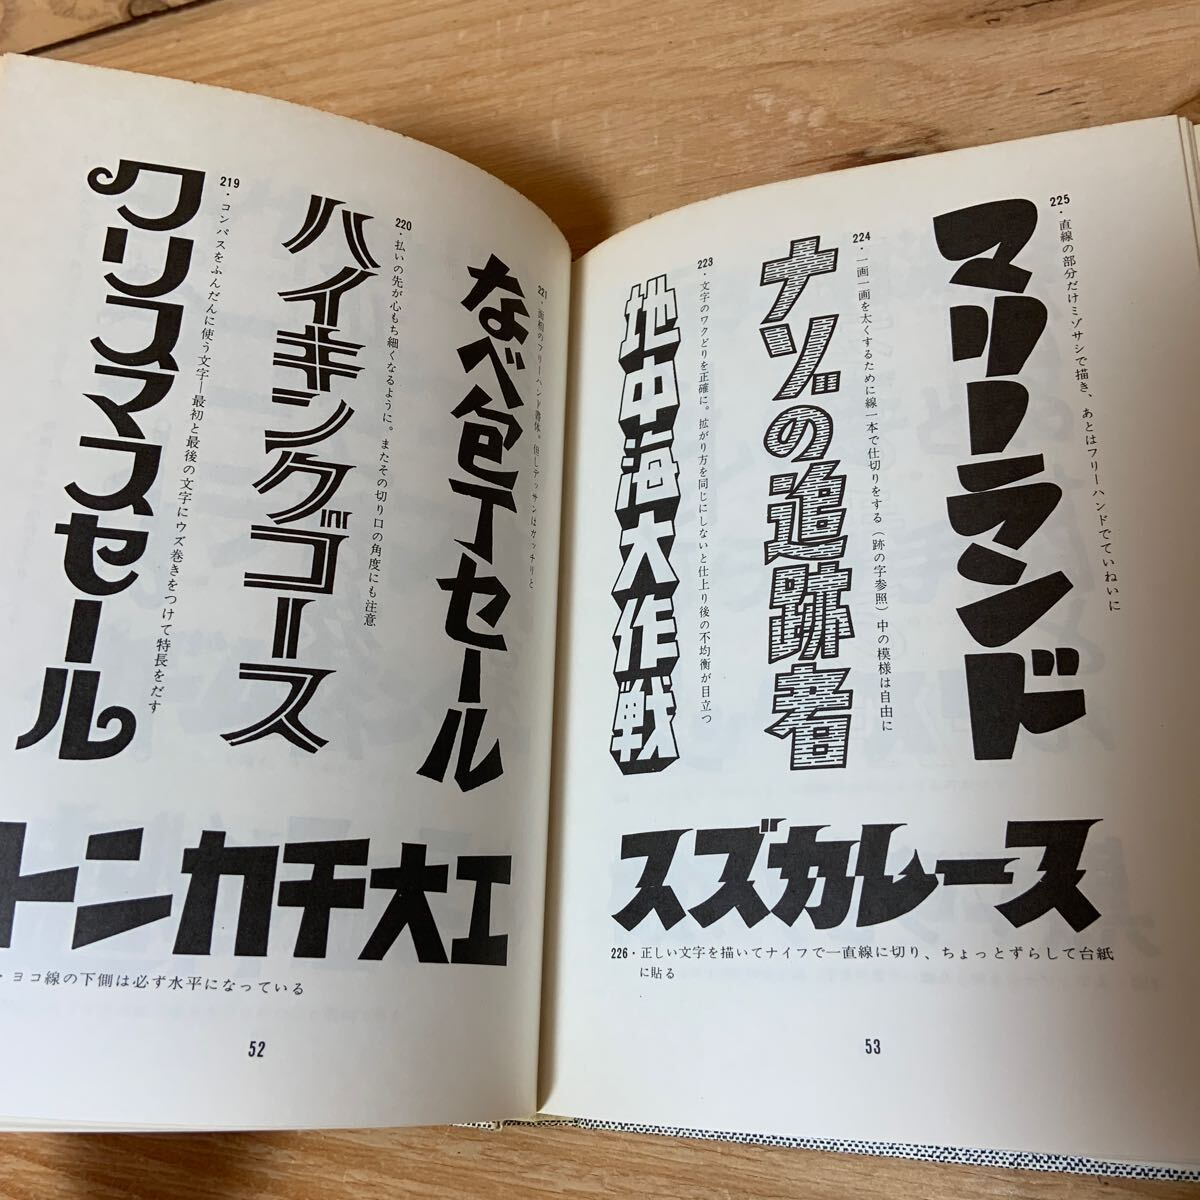 クリスマスセール
219・コンパスをふんだんに使う文字―最初と最後の文字にウズ巻きをつけて特長をだす
ハイキングコース
220・払いの先が心もち細くなるように。またその切り口の角度にも注意
なべ包丁セール
221・面相のフリーハンド書体。但しデッサンはガッチリと
トンカチ大工
・ヨコ線の下側は必ず水平になっている
52
地中海大作戦
223・文字のワクどりを正確に。拡がり方を同じにしないと仕上り後の不均衡が目立つ
ナゾの追跡者
224・一画一画を太くするために線一本で仕切りをする（跡の字参照）中の模様は自由に
マリーランド
225・直線の部分だけミゾサシで描き、あとはフリーハンドでていねいに
スズカレース
226・正しい文字を描いてナイフで一直線に切り、ちょっとずらして台紙
に貼る
53